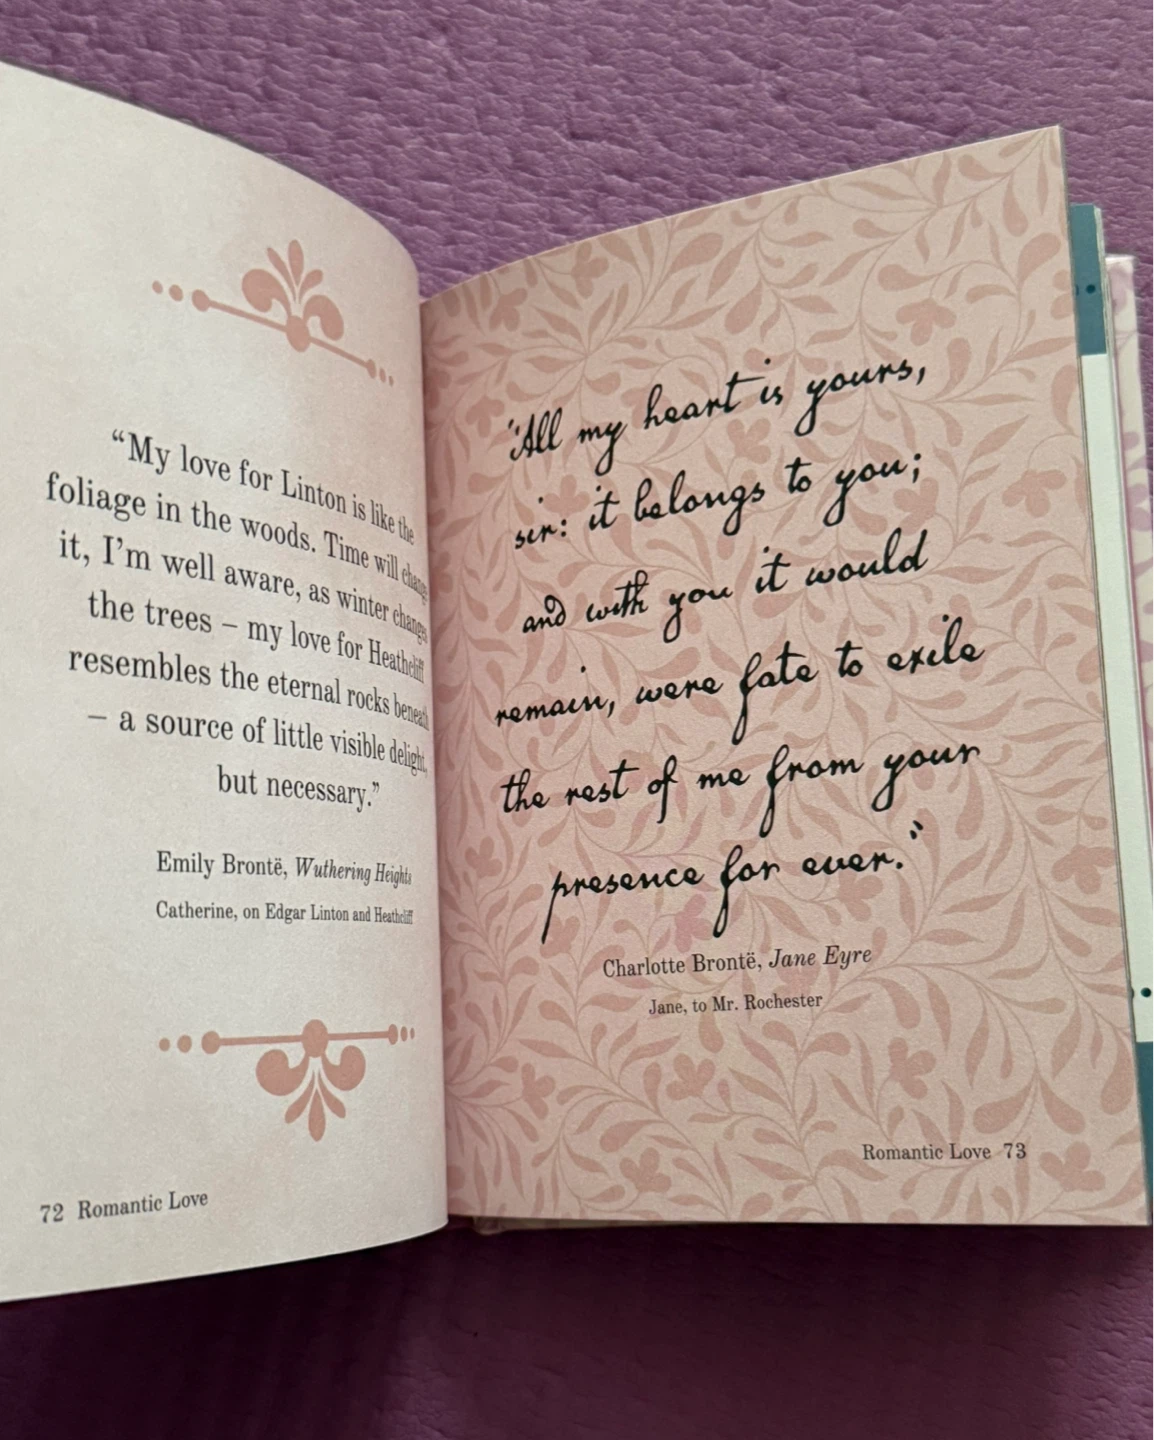 “My love for Linton is like the
foliage in the woods. Time will change
it, I’m well aware, as winter changes
the trees – my love for Heathcliff
resembles the eternal rocks beneath
– a source of little visible delight,
but necessary.”
Emily Brontë, Wuthering Heights
Catherine, on Edgar Linton and Heathcliff
72 Romantic Love
“All my heart is yours,
sir: it belongs to you;
and with you it would
remain, were fate to exile
the rest of me from your
presence for ever.”
Charlotte Brontë, Jane Eyre
Jane, to Mr. Rochester
Romantic Love 73